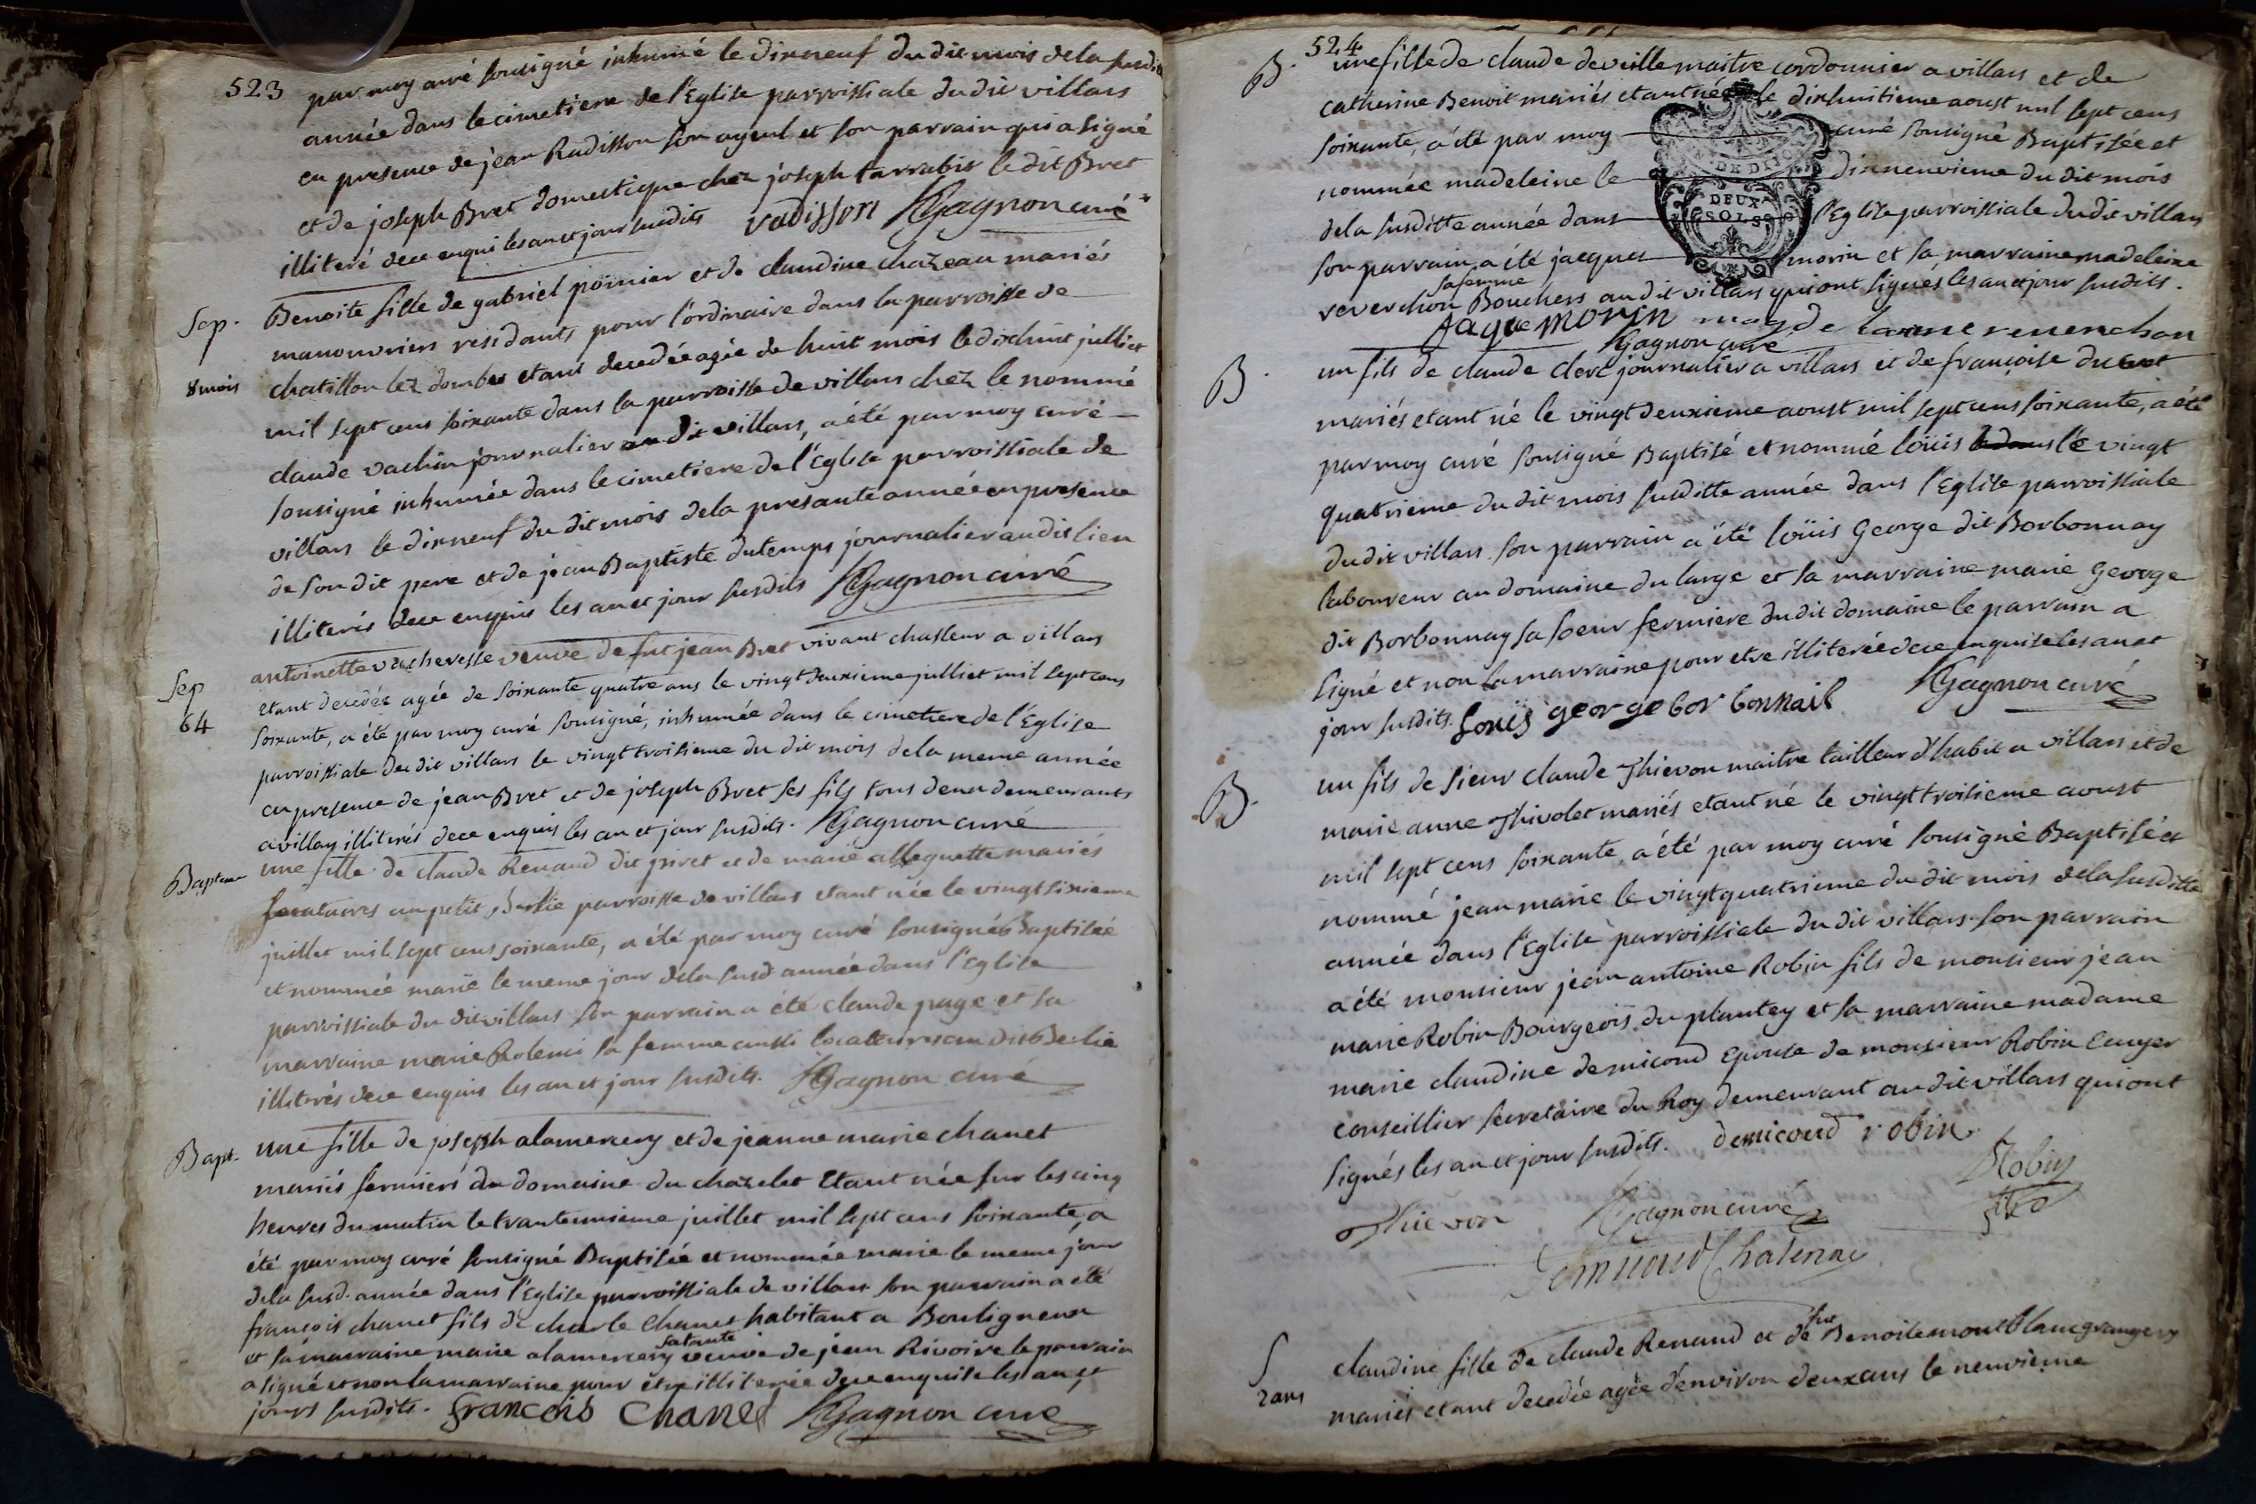 523
par moy curé sousigné inhumé le dixneuf du dit mois de la susdite
année dans le cimetiere de l'Eglise parroissiale du dit villars
en presence de jean Radisson son ayeul et son parrain qui a signé
et de joseph Bret domestique chez joseph tarrabit le dit Bret
illiteré dece enqui les an et jour susdits radisson Gagnon curé
Sep.
8 mois
Benoite fille de gabriel poinier et de claudine chazeau mariés
manouvriers residants pour l'ordinaire dans la parroisse de
chatillon lez dombes etant decedée agée de huit mois le dixhuit julliet
mil sept cens soixante dans la parroisse de villars chez le nommé
claude vachin journalier au dit villars, a été par moy curé
sousigné inhumée dans le cimetiere de l'Eglise parroissiale de
villars le dixneuf du dit mois de la presante année en presence
de son dit pere et de jean Baptiste dutemps journalier au dit lieu
illiterés dece enquis les an et jour susdits Gagnon curé
Sep
64
antoinette vacheresse veuve de fut jean Bret vivant chasseur a villars
etant decedée agée de soixante quatre ans le vingt deuxieme julliet mil sept cens
soixante, a été par moy curé sousigné, inhumée dans le cimetiere de l'Eglise
parroissiale du dit villars le vingt troisieme du dit mois de la meme année
en presence de jean Bret et de joseph Bret ses fils tous deux demeurants
a villars illiterés dece enquis les an et jour susdits. Gagnon curé
Bapteme
une fille de claude Renaud dit privet et de marie mariés
locataires au petit Berlie parroisse de villars etant née le vingt sixieme
juillet mil sept cens soixante, a été par moy curé sousigné Baptisée
et nommée marie le meme jour de la susd année dans l'Eglise
parroissiale du dit villars son parrain a été claude page et sa
marraine marie Rolenci sa femme aussi locataires au dit Berlie
illiterés dece enquis les an et jour susdits. Gagnon curé
Bapt.
une fille de joseph alamercery et de jeanne marie chanet
mariés fermiers du domaine du chazelet etant née sur les cinq
heures du matin le tranteunieme juillet mil sept cens soixante, a
été par moy curé sousigné Baptisée et nommée marie le meme jour
de la susd. année dans l'Eglise parroissiale de villars son parrain a été
françois chanet fils de charle chanet habitant a Bouligneux
et sa marraine marie alamercery sa tante veuve de jean Rivoire le parrain
a signé et non la marraine pour étre illiterée dece enquise les an et
jours susdits. francois Chanet Gagnon curé
524
B.
une fille de claude deveille maitre cordonnier a villars et de
catherine Benoit mariés etant née le dixhuitieme aoust mil sept cens
soixante, a été par moy curé sousigné Baptisée et
nommée madeleine le dixneuvieme du dit mois
de la susditte année dans l'Eglise parroissiale du dit villars
DE DIJON
DEUX
SOLS
son parrain a été jacques morin et sa marraine madeleine
reverchon sa femme Bouchers au dit villars qui ont signés les an et jour susdits.
Jaque morin reverchon
Gagnon curé
B.
un fils de claude clerc journalier a villars et de francoise ducret
mariés etant né le vingt deuxieme aoust mil sept cens soixante, a été
par moy curé sousigné Baptisé et nommé loüis le vingt
quatrieme du dit mois susditte année dans l'Eglise parroissiale
du dit villars son parrain a été loüis George dit Borbonnay
laboureur au domaine du large et sa marraine marie George
dit Borbonnay sa soeur fermiere du dit domaine le parrain a
signé et non la marraine pour etre illiterée dece enquise les an et
jour susdits. loüis george bor bonnail Gagnon curé
B.
un fils de sieur claude Thievon maitre tailleur d'habit a villars et de
marie anne Thivolet mariés etant né le vingt troisieme aoust
mil sept cens soixante, a été par moy curé sousigné Baptisé et
nommé jean marie le vingt quatrieme du dit mois de la susditte
année dans l'Eglise parroissiale du dit villars son parrain
a été monsieur jean antoine Robin fils de monsieur jean
marie Robin Bourgeois du plantay et sa marraine madame
marie claudine demicoud epouse de monsieur Robin Ecuyer
conseillier secretaire du Roy demeurant au dit villars qui ont
signés les an et jour susdits. demicoud robin
Robin
fils
Thievon Gagnon curé
Chalenne
S
2 ans
claudine fille de claude Renaud et de fut Benoite mont blanc grangers
mariés etant decedée agée d'environ deux ans le neuvieme